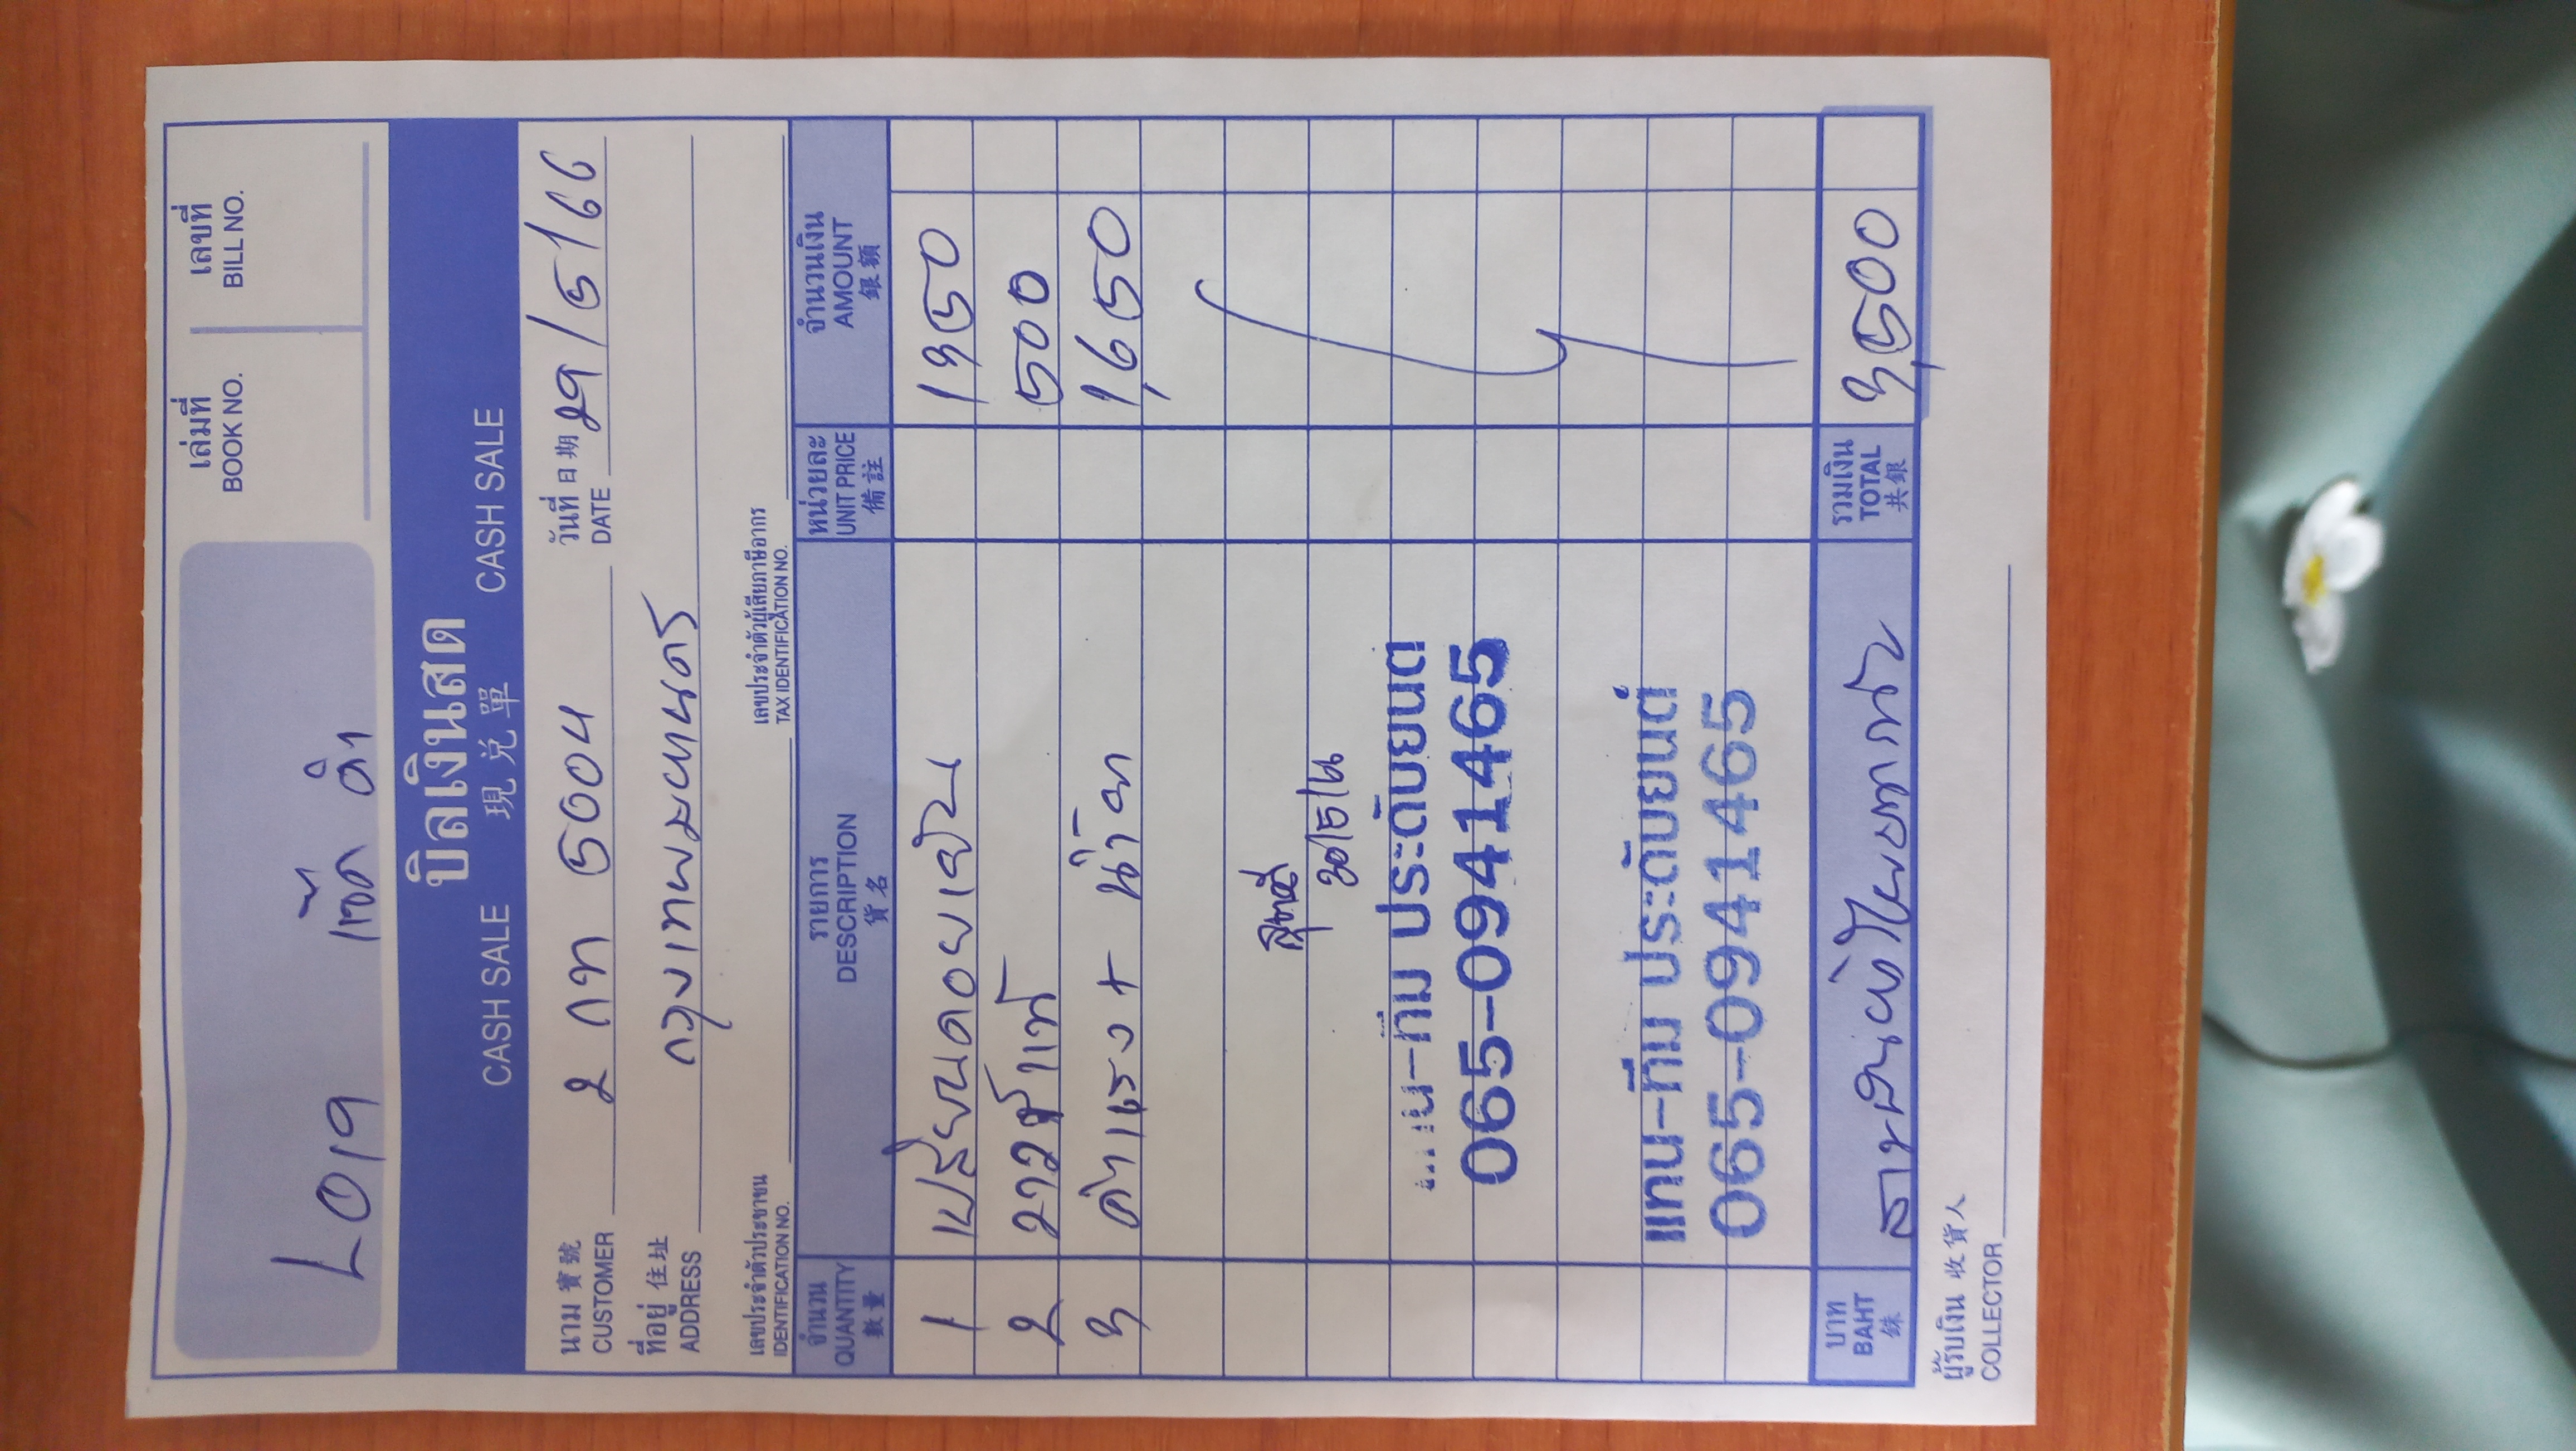 เล่มที่ เลขที่
BOOK NO. BILL NO.
LO19 เซ็ด ดำ
บิลเงินสด
CASH SALE 現兌單 CASH SALE
นาม 寳號 2 กท 5004 วันที่ 日期 29/5/66
CUSTOMER DATE
ที่อยู่ 住址 กรุงเทพมหานคร
ADDRESS
เลขประจำตัวประชาชน เลขประจำตัวผู้เสียภาษีอากร
IDENTIFICATION NO. TAX IDENTIFICATION NO.
จำนวน รายการ หน่วยละ จำนวนเงิน
QUANTITY DESCRIPTION UNIT PRICE AMOUNT
數量 貨名 備註 銀額
1 เปลี่ยนคอยเย็น 1350
2 วาวล์แท้ 500
3 ค่าแรง + น้ำยา 1,650
20/5/
-ทีม ประดับยนต์
065-0941465
แทน-ทีม ประดับยนต์
065-0941465
บาท สามพันห้าร้อยบาทถ้วน รวมเงิน 3,500
BAHT TOTAL
銖 共銀
ผู้รับเงิน 收貨人
COLLECTOR